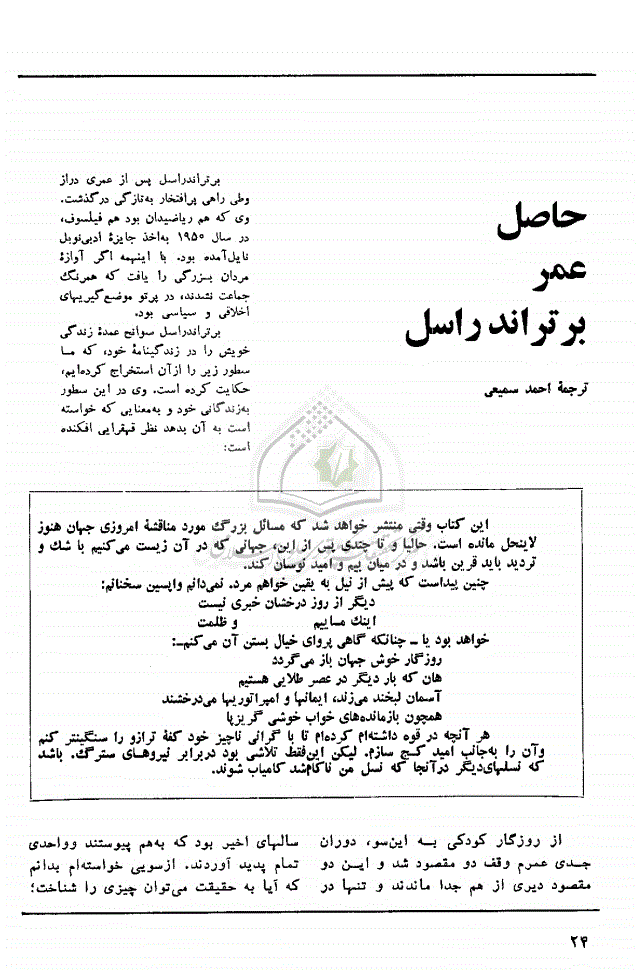 حاصل
عمر
برتراندراسل
ترجمهٔ احمد سمیعی
برتراندراسل پس از عمری دراز
وطی راهی پرافتخار به‌تازگی درگذشت.
وی که هم ریاضیدان بود هم فیلسوف،
در سال ۱۹۵۰ به‌اخذ جایزهٔ ادبی‌نوبل
نایل‌آمده بود. با اینهمه اگر آوازهٔ
مردان بزرگی را یافت که همرنگ
جماعت نشدند، در پرتو موضع‌گیریهای
اخلاقی و سیاسی بود.
برتراندراسل سوانح عمدهٔ زندگی
خویش را در زندگینامهٔ خود، که ما
سطور زیر را ازآن استخراج کرده‌ایم،
حکایت کرده است. وی در این سطور
به‌زندگانی خود و به‌معنایی که خواسته
است به آن بدهد نظر قهقرایی افکنده
است:
این کتاب وقتی منتشر خواهد شد که مسائل بزرگ مورد مناقشهٔ امروزی جهان هنوز
لاینحل مانده است. حالیا و تا چندی پس از این، جهانی که در آن زیست می‌کنیم با شك و
تردید باید قرین باشد و در میان بیم و امید نوسان کند.
چنین پیداست که پیش از نیل به یقین خواهم مرد. نمی‌دانم واپسین سخنانم:
دیگر از روز درخشان خبری نیست
اینك ماییم و ظلمت
خواهد بود یا ـ چنانکه گاهی پروای خیال بستن آن می‌کنم ـ:
روزگار خوش جهان باز می‌گردد
هان که بار دیگر در عصر طلایی هستیم
آسمان لبخند می‌زند، ایمانها و امپراتوریها می‌درخشند
همچون بازمانده‌های خواب خوشی گریزپا
هر آنچه در قوه داشته‌ام کرده‌ام تا با گرانی ناچیز خود کفهٔ ترازو را سنگینتر کنم
وآن را به‌جانب امید کج سازم. لیکن این‌فقط تلاشی بود دربرابر نیروهای سترگ. باشد
که نسلهای‌دیگر درآنجا که نسل من ناکام‌شد کامیاب شوند.
از روزگار کودکی به این‌سو، دوران
جدی عمرم وقف دو مقصود شد و این دو
مقصود دیری از هم جدا ماندند و تنها در
سالهای اخیر بود که به‌هم پیوستند وواحدی
تمام پدید آوردند. ازسویی خواسته‌ام بدانم
که آیا به حقیقت می‌توان چیزی را شناخت؛
۲۴